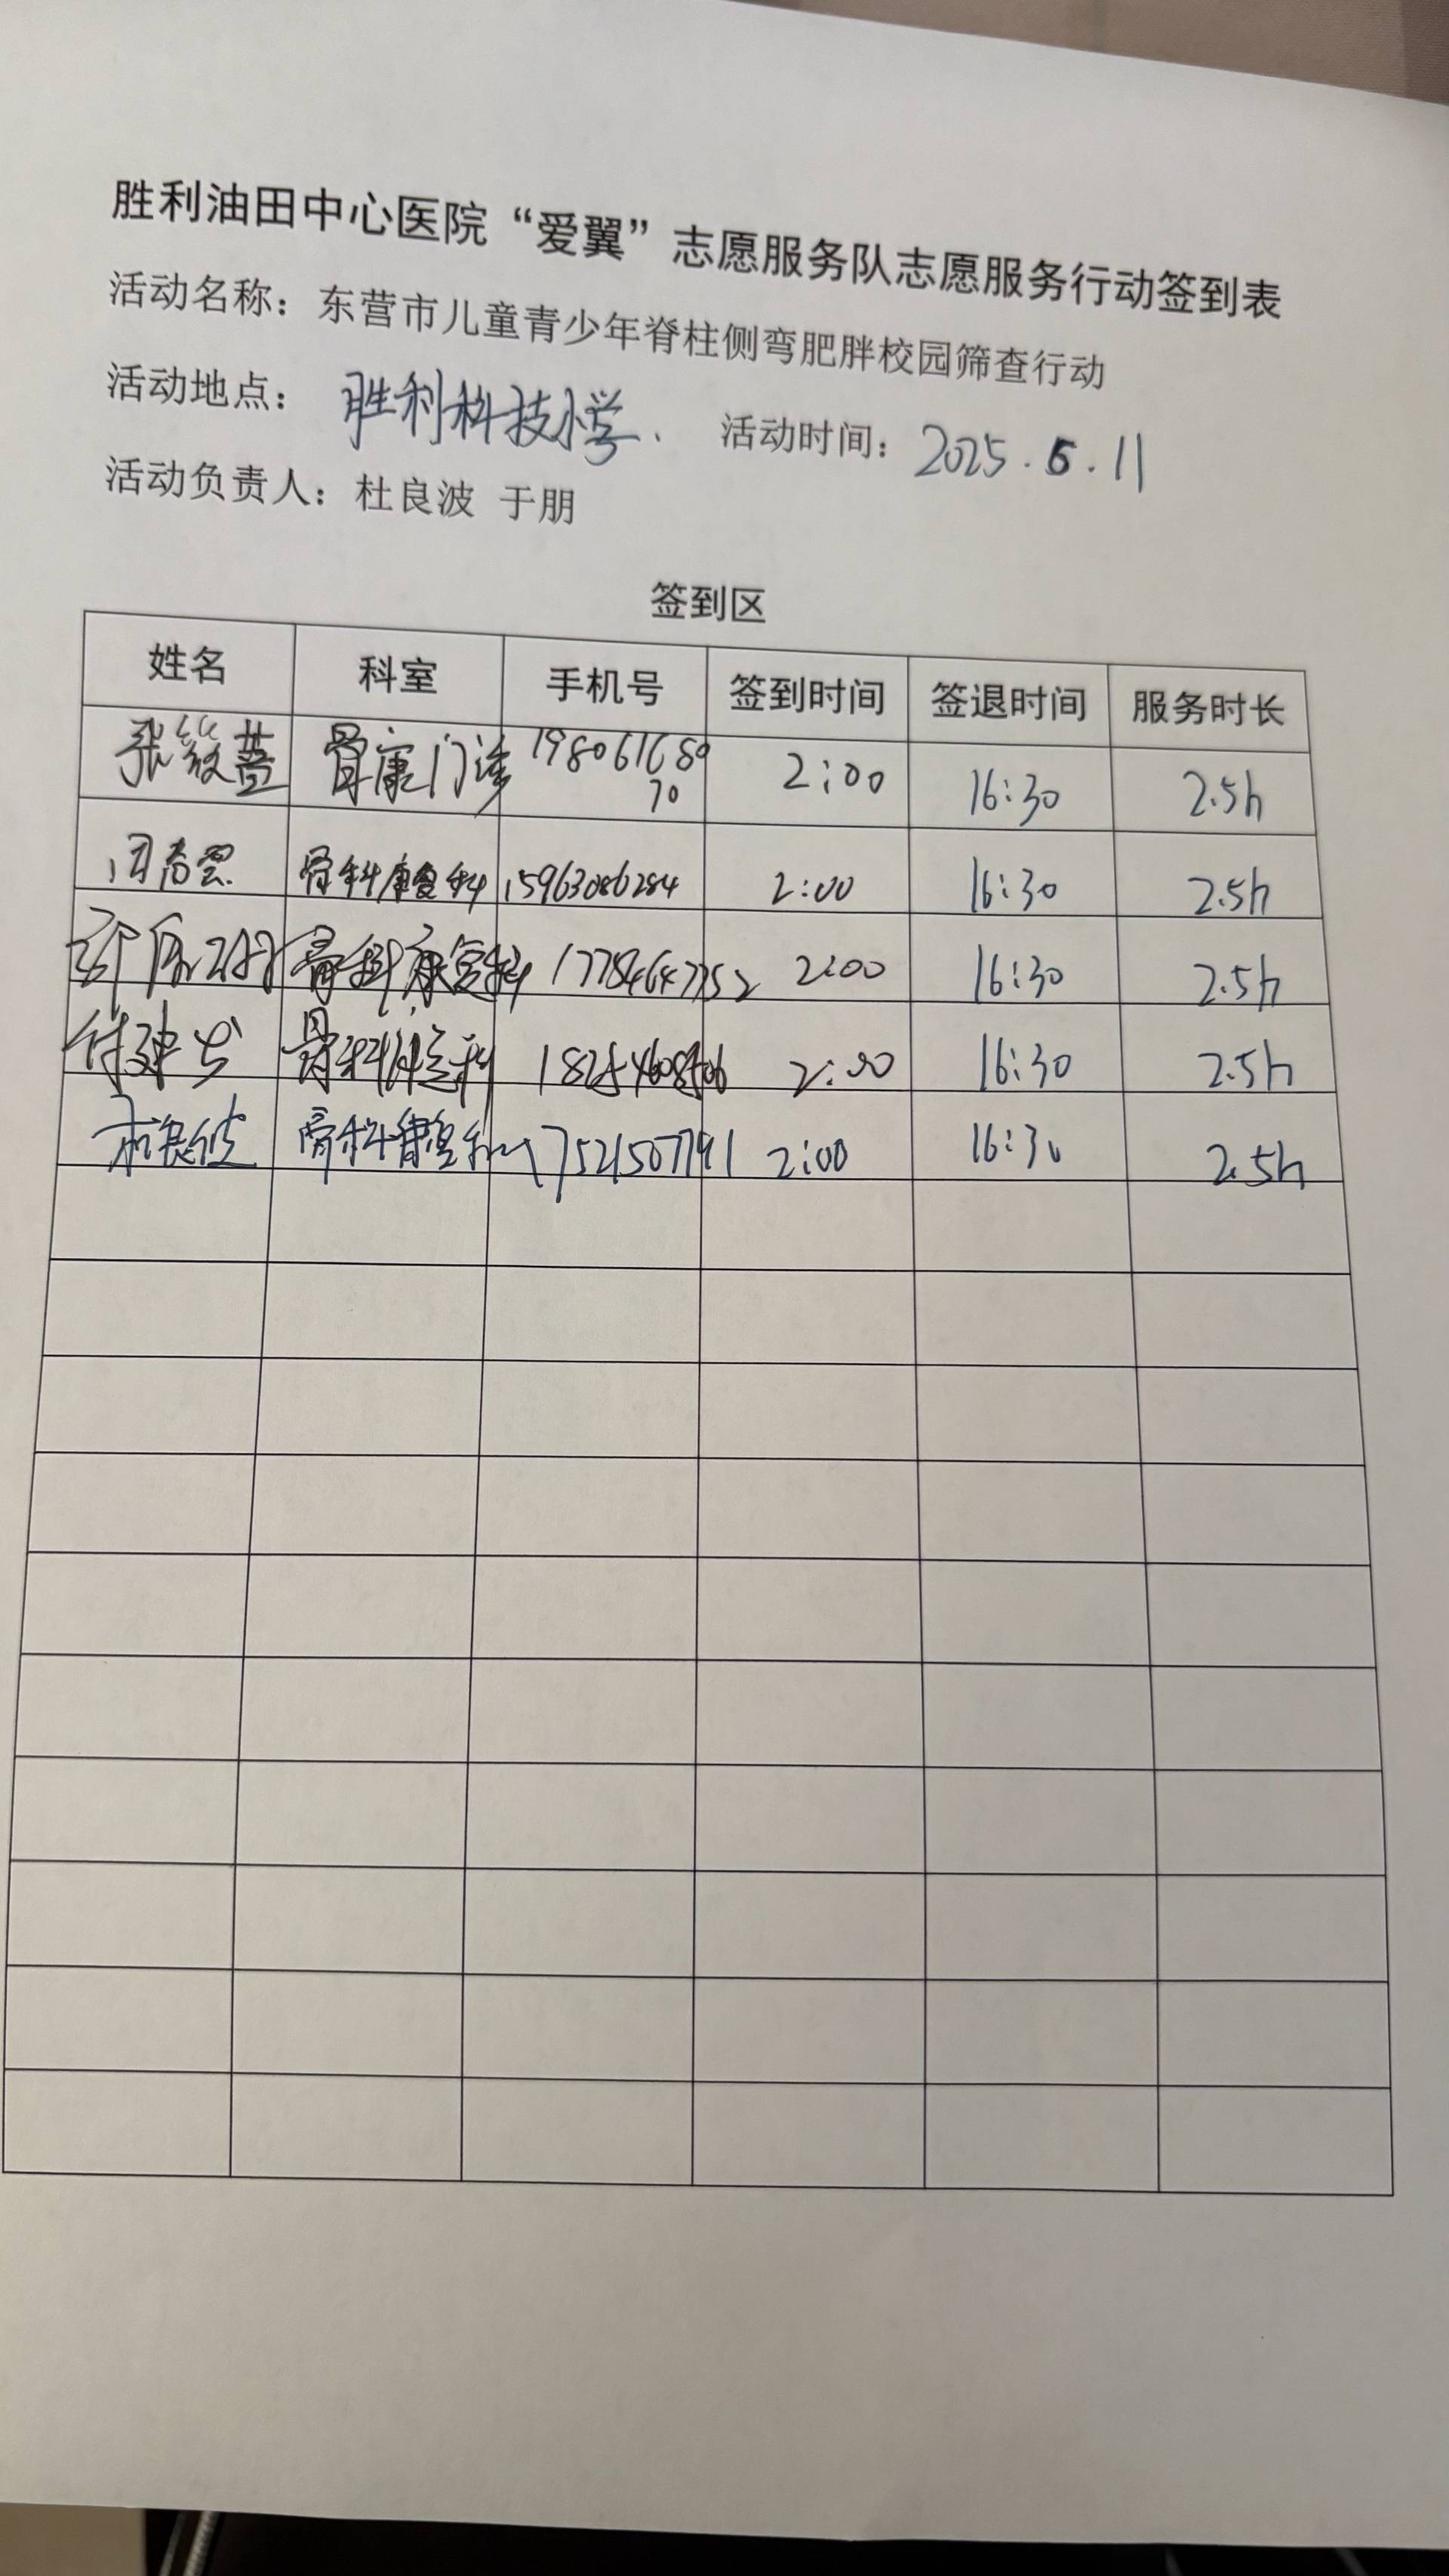 胜利油田中心医院“爱翼”志愿服务队志愿服务行动签到表
活动名称：东营市儿童青少年脊柱侧弯肥胖校园筛查行动
活动地点： 胜利科技小学. 活动时间：2025.5.11
活动负责人：杜良波 于朋
签到区
姓名 科室 手机号 签到时间 签退时间 服务时长
张筱 骨康门诊 19806168070 2:00 16:30 2.5h
骨科康复科 15963086284 2:00 16:30 2.5h
骨科康复科 17784647752 2:00 16:30 2.5h
付建 骨科康复科 2:00 16:30 2.5h
杜良波 骨科康复科 17521507791 2:00 16:30 2.5h